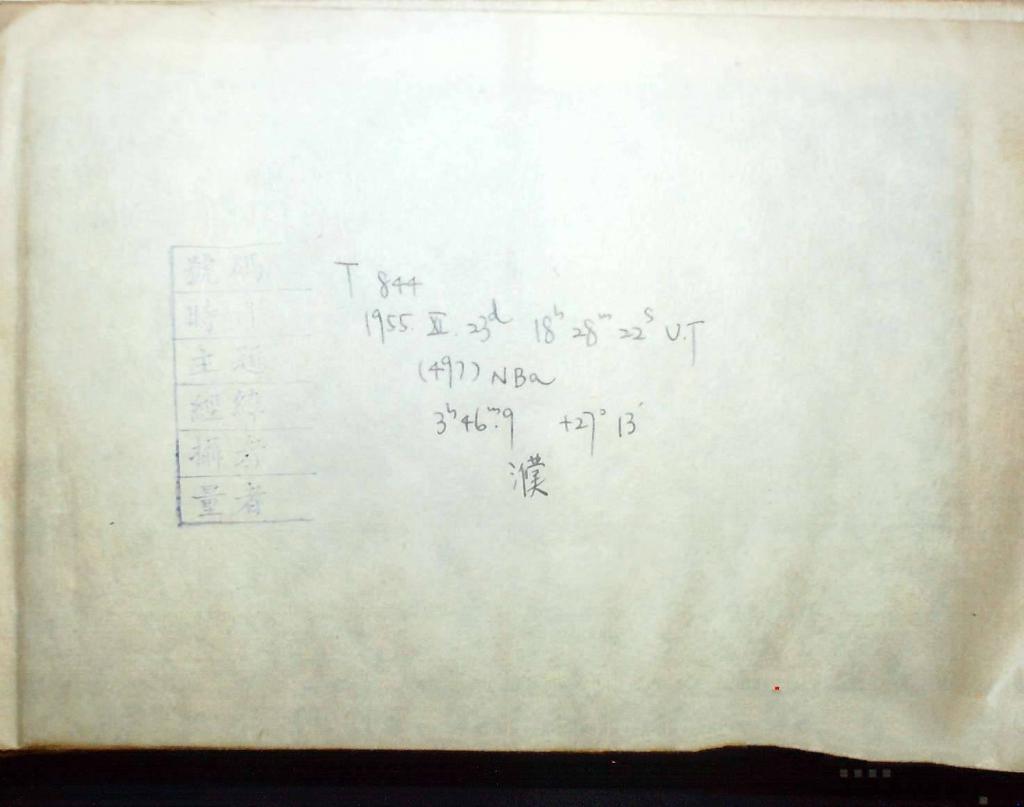 號碼
時
主題
經緯
攝者
量者
T 844
1955. XII. 23ᵈ 18ʰ 28ᵐ 22ˢ U.T
(497) NBa
3ʰ46ᵐ.9 +27° 13′
濮